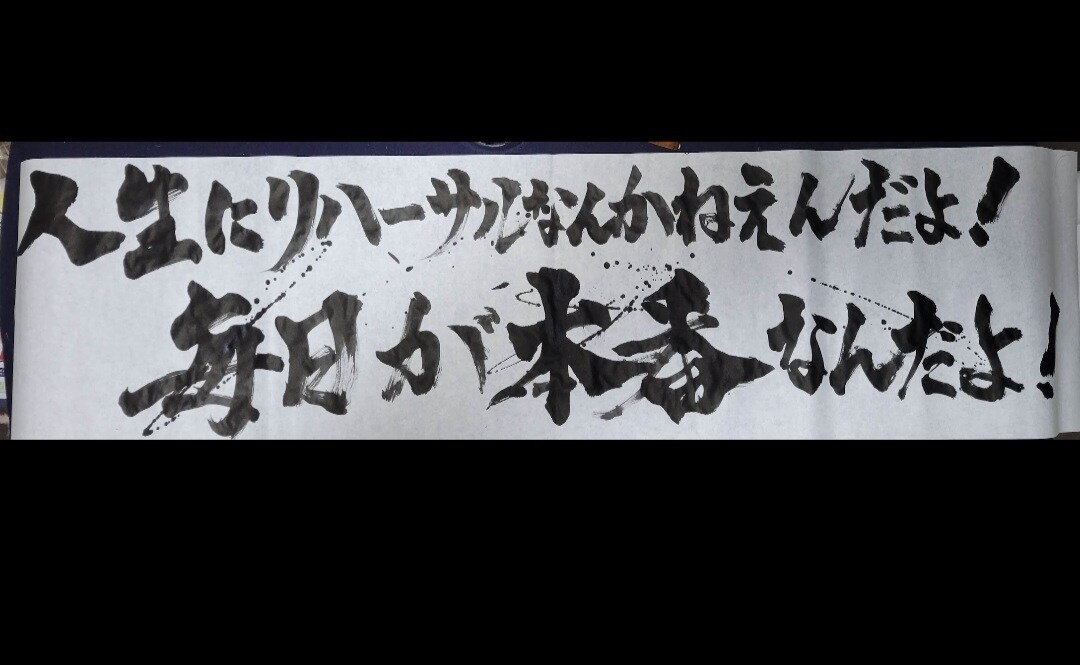 人生にリハーサルなんかねえんだよ！
毎日が本番なんだよ！